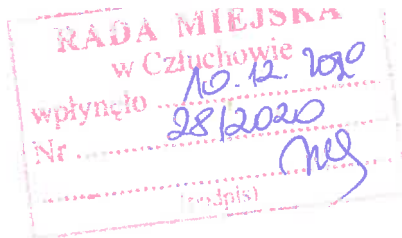 RADA MIEJSKA
w Człuchowie
wpłynęło 10.12.2020
Nr 28/2020
(podpis)